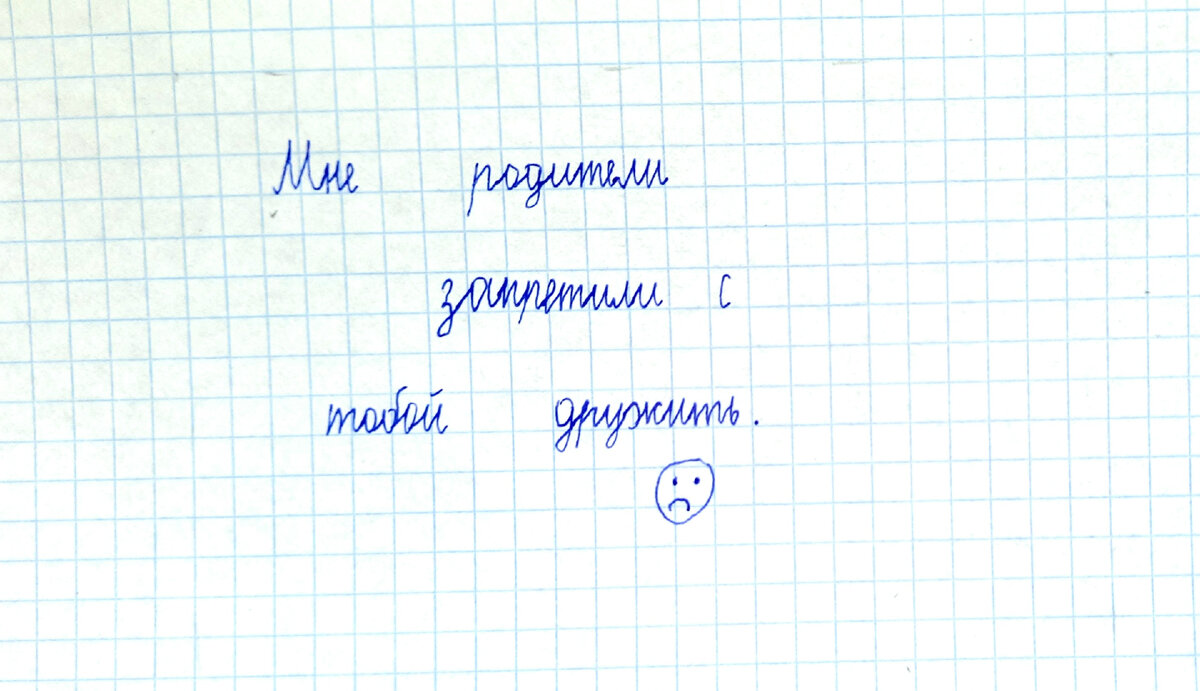 Мне родители
запретили с
тобой дружить.